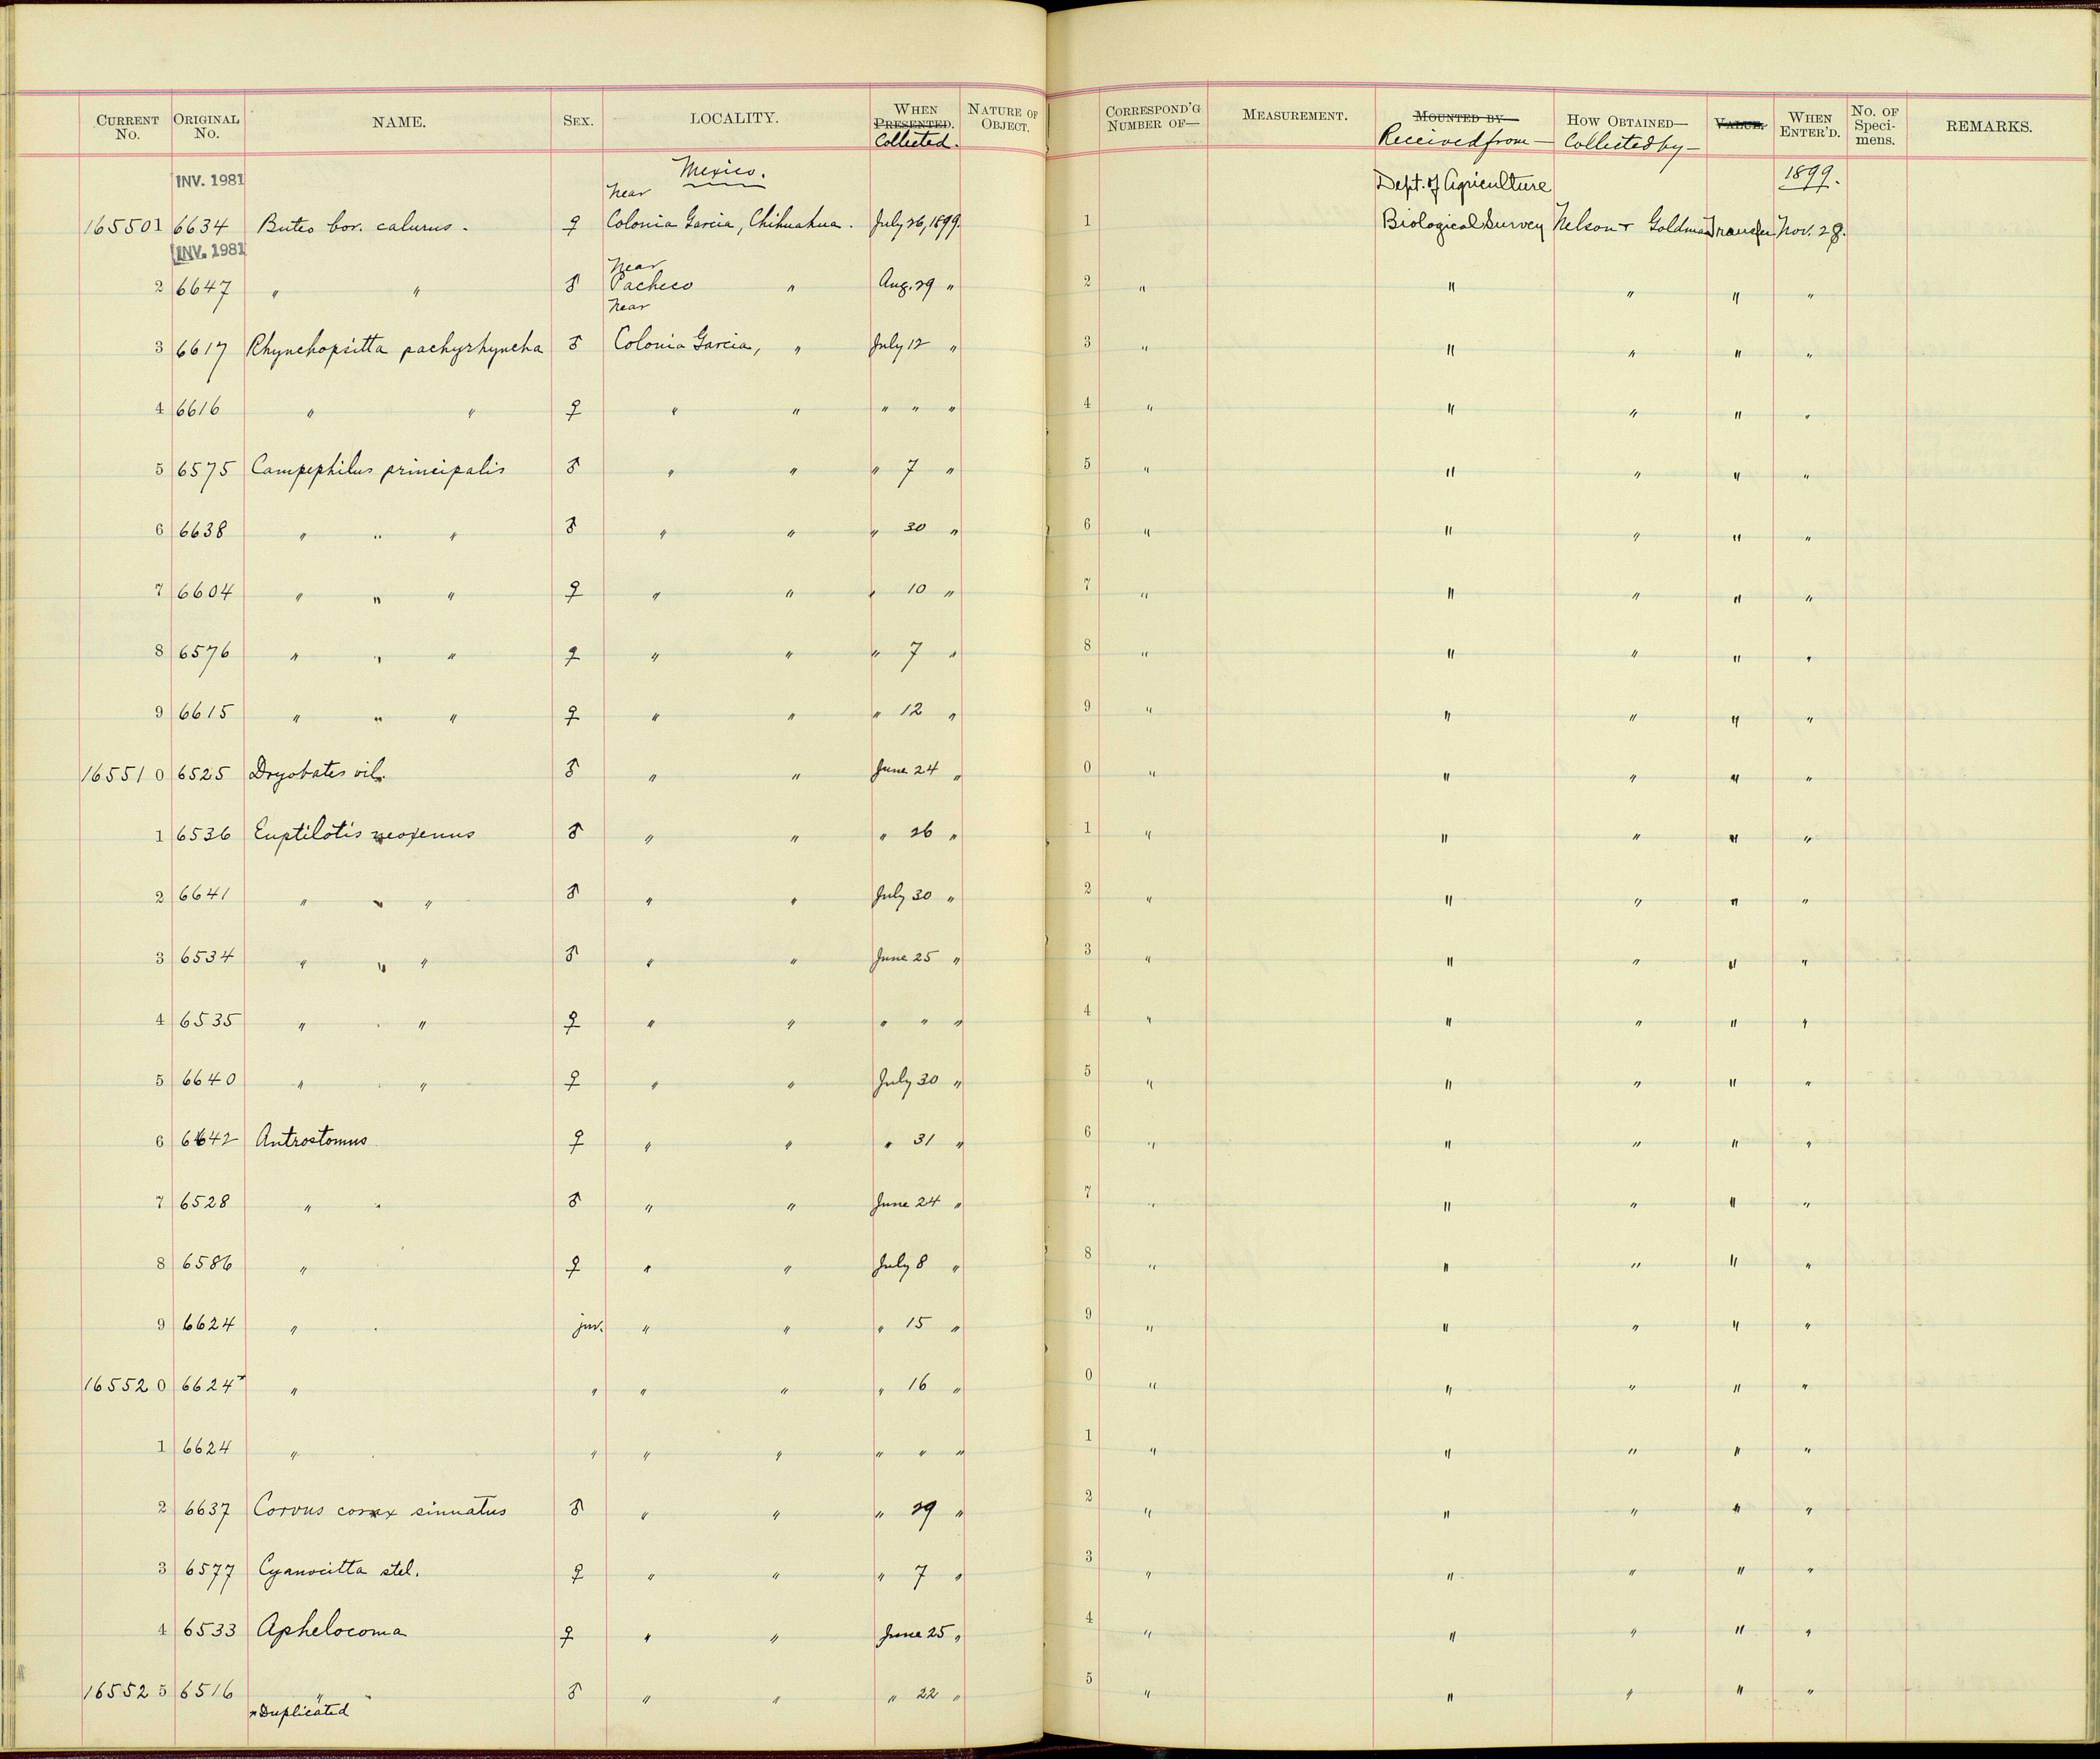 CURRENT No. ORIGINAL No. NAME. SEX. LOCALITY. WHEN PRESENTED. Collected. NATURE OF OBJECT. CORRESPOND'G NUMBER OF— MEASUREMENT. MOUNTED BY— Received from — HOW OBTAINED— Collected by — VALUE. WHEN ENTER'D. No. OF Speci-mens. REMARKS.
INV. 1981 Mexico. Dept. of Agriculture 1899.
Near
165501 6634 Buteo bor. calurus. ♀ Colonia Garcia, Chihuahua. July 26, 1899. 1 Biological Survey Nelson + Goldman Transfer Nov. 28.
INV. 1981 Near
2 6647 " " ♂ Pacheco " Aug. 29 " 2 " " " " "
Near
3 6617 Rhynchopsitta pachyrhyncha ♂ Colonia Garcia, " July 12 " 3 " " " " "
4 6616 " " ♀ " " " " " 4 " " " " "
5 6575 Campephilus principalis ♂ " " " 7 " 5 " " " " "
6 6638 " " " ♂ " " " 30 " 6 " " " " "
7 6604 " " " ♀ " " " 10 " 7 " " " " "
8 6576 " " " ♀ " " " 7 " 8 " " " " "
9 6615 " " " ♀ " " " 12 " 9 " " " " "
165510 6525 Dryobates vil. ♂ " " June 24 " 0 " " " " "
1 6536 Euptilotis neoxenus ♂ " " " 26 " 1 " " " " "
2 6641 " " " ♂ " " July 30 " 2 " " " " "
3 6534 " " " ♂ " " June 25 " 3 " " " " "
4 6535 " " ♀ " " " " " 4 " " " " "
5 6640 " " ♀ " " July 30 " 5 " " " " "
6 6642 Antrostomus ♀ " " " 31 " 6 " " " " "
7 6528 " ♂ " " June 24 " 7 " " " " "
8 6586 " ♀ " " July 8 " 8 " " " " "
9 6624 " juv. " " " 15 " 9 " " " " "
165520 6624* " " " " " 16 " 0 " " " " "
1 6624 " " " " " " " 1 " " " " "
2 6637 Corvus corax sinuatus ♂ " " " 29 " 2 " " " " "
3 6577 Cyanocitta stel. ♀ " " " 7 " 3 " " " " "
4 6533 Aphelocoma ♀ " " June 25 " 4 " " " " "
165525 6516 " ♂ " " " 22 " 5 " " " " "
* Duplicated